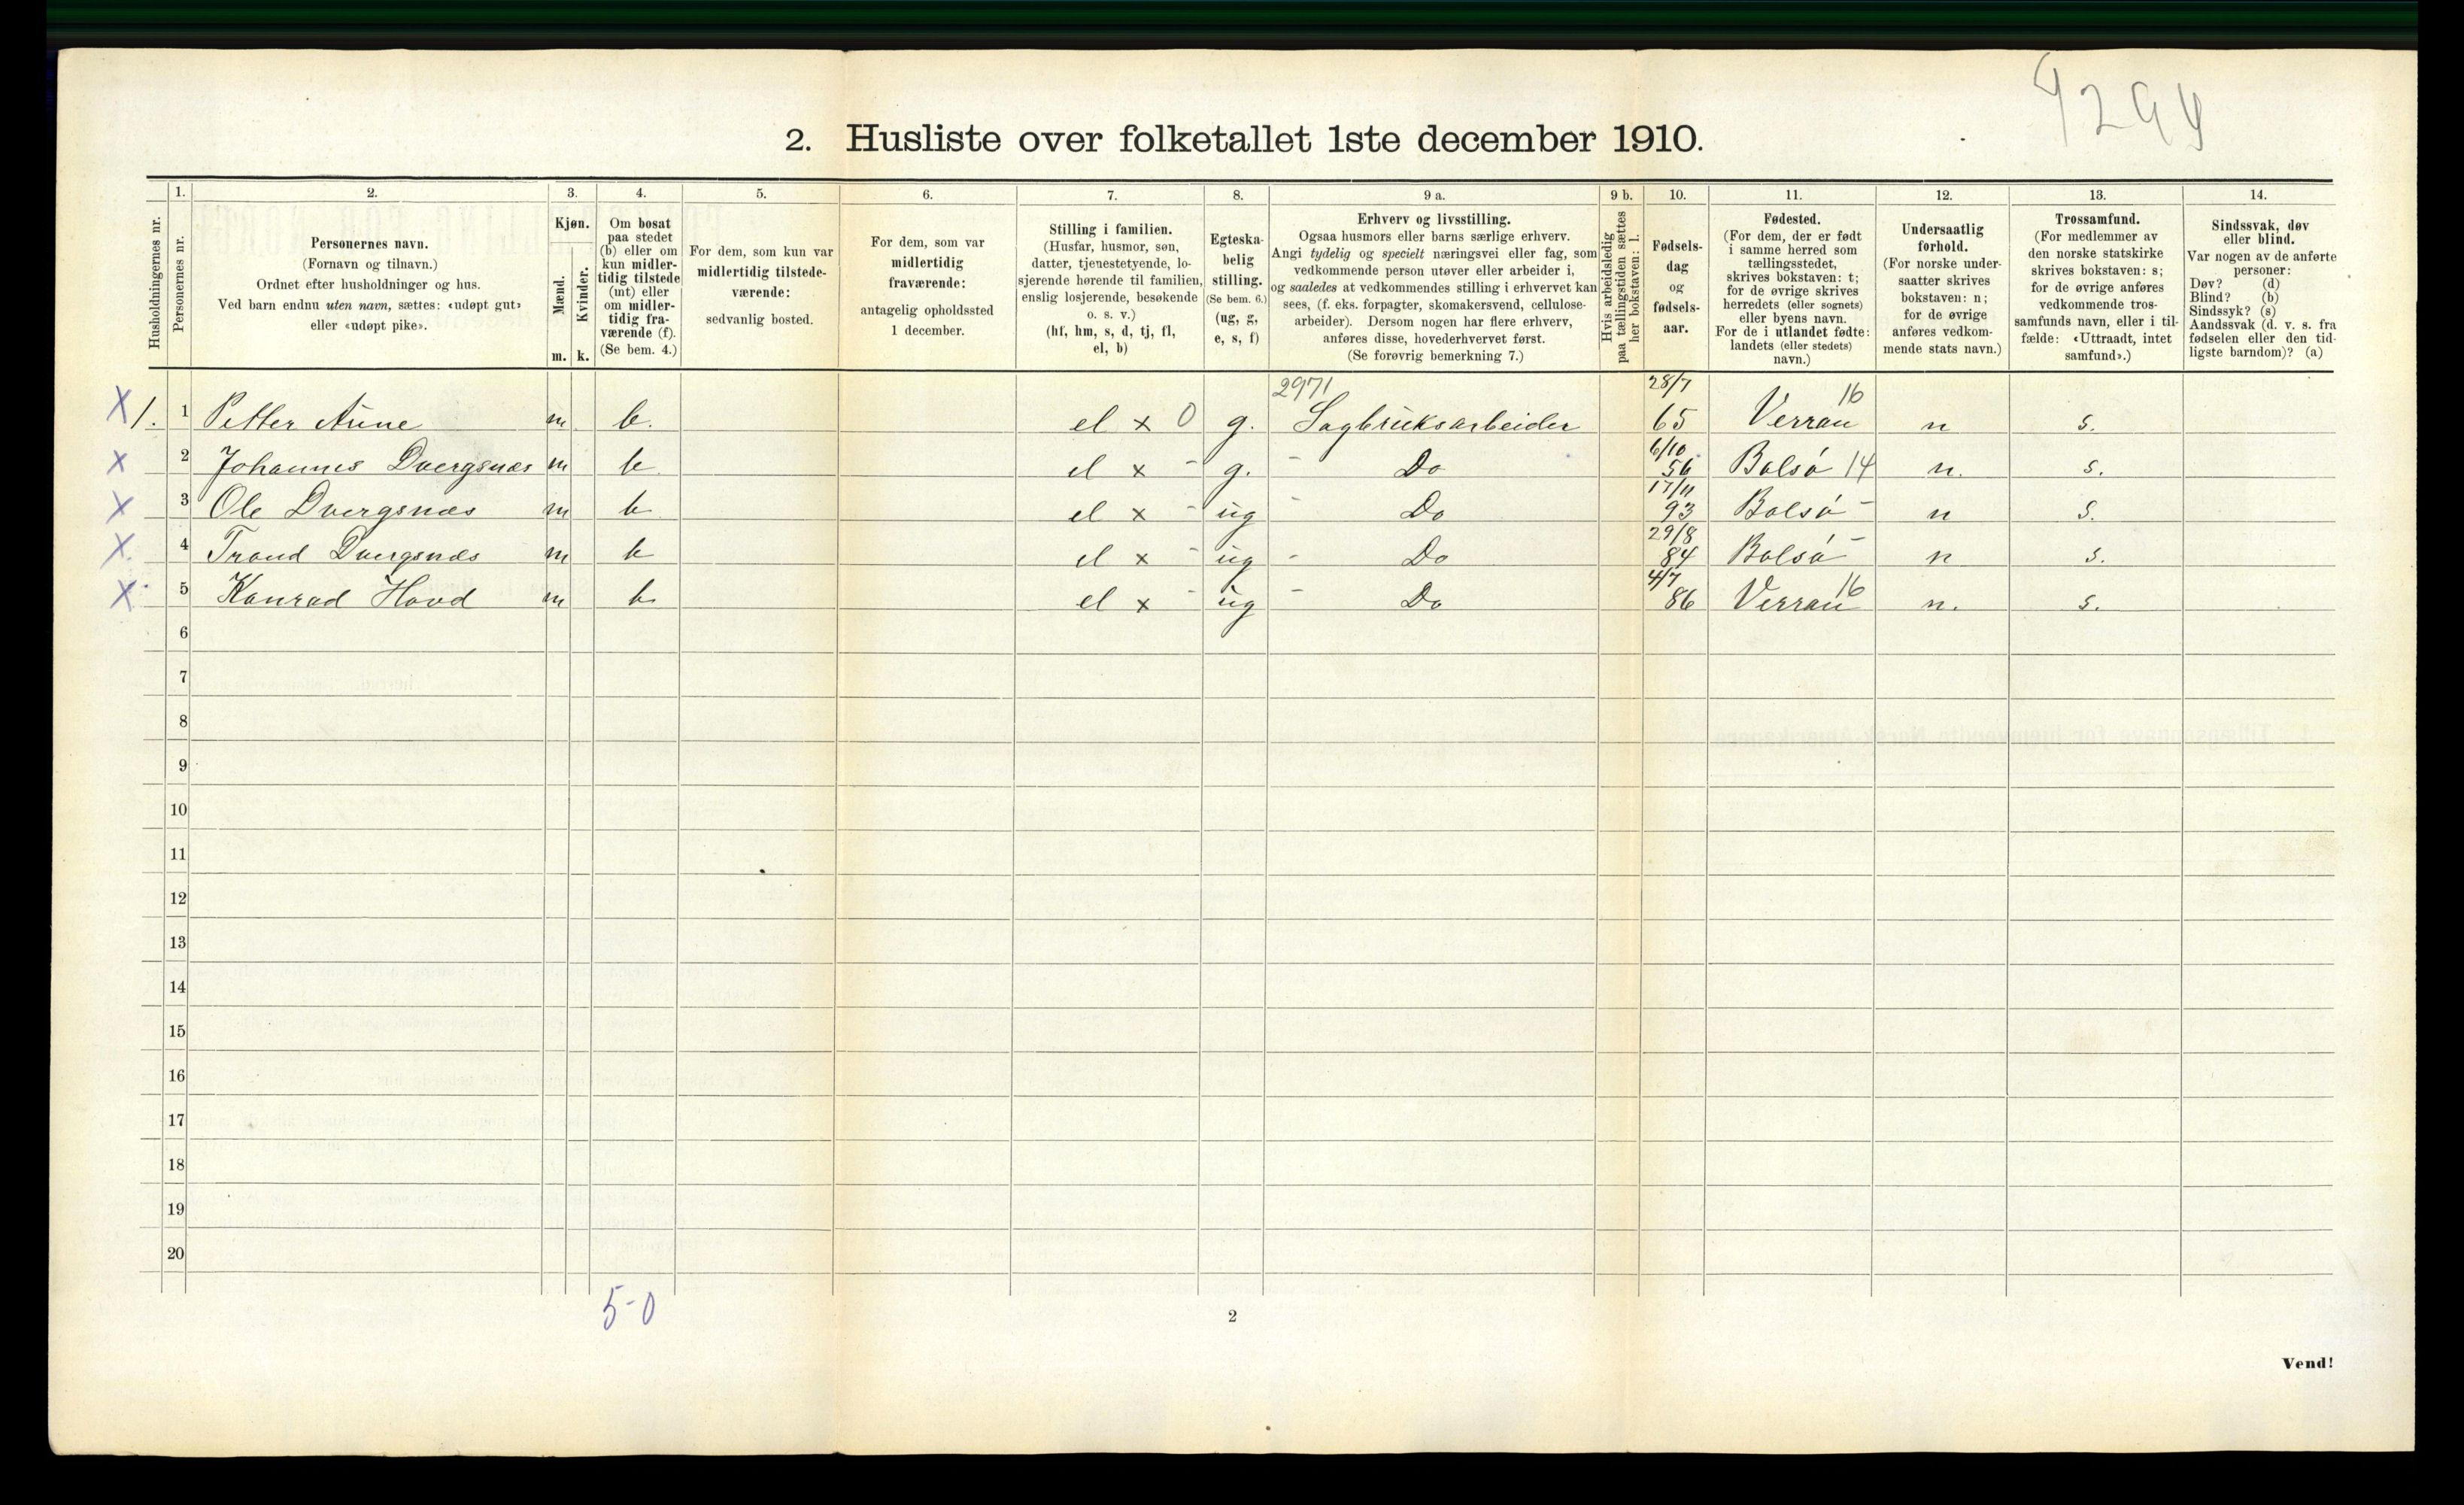 9294
2. Husliste over folketallet 1ste december 1910.
Husholdningernes nr.
1. Personernes nr.
2. Personernes navn. (Fornavn og tilnavn.) Ordnet efter husholdninger og hus. Ved barn endnu uten navn, sættes: «udøpt gut» eller «udøpt pike».
3. Kjøn. Mænd. m. Kvinder. k.
4. Om bosat paa stedet (b) eller om kun midlertidig tilstede (mt) eller om midlertidig fraværende (f). (Se bem. 4.)
5. For dem, som kun var midlertidig tilstedeværende: sedvanlig bosted.
6. For dem, som var midlertidig fraværende: antagelig opholdssted 1 december.
7. Stilling i familien. (Husfar, husmor, søn, datter, tjenestetyende, losjerende hørende til familien, enslig losjerende, besøkende o. s. v.) (hf, hm, s, d, tj, fl, el, b)
8. Egteskabelig stilling. (Se bem. 6.) (ug, g, e, s, f)
9 a. Erhverv og livsstilling. Ogsaa husmors eller barns særlige erhverv. Angi tydelig og specielt næringsvei eller fag, som vedkommende person utøver eller arbeider i, og saaledes at vedkommendes stilling i erhvervet kan sees, (f. eks. forpagter, skomakersvend, cellulosearbeider). Dersom nogen har flere erhverv, anføres disse, hovederhvervet først. (Se forøvrig bemerkning 7.)
9 b. Hvis arbeidsledig paa tællingstiden sættes her bokstaven: l.
10. Fødselsdag og fødselsaar.
11. Fødested. (For dem, der er født i samme herred som tællingsstedet, skrives bokstaven: t; for de øvrige skrives herredets (eller sognets) eller byens navn. For de i utlandet fødte: landets (eller stedets) navn.)
12. Undersaatlig forhold. (For norske undersaatter skrives bokstaven: n; for de øvrige anføres vedkommende stats navn.)
13. Trossamfund. (For medlemmer av den norske statskirke skrives bokstaven: s; for de øvrige anføres vedkommende trossamfunds navn, eller i tilfælde: «Uttraadt, intet samfund».)
14. Sindssvak, døv eller blind. Var nogen av de anførte personer: Døv? (d) Blind? (b) Sindssyk? (s) Aandssvak (d. v. s. fra fødselen eller den tidligste barndom)? (a)
X 1. 1 Petter Aune m b. el x 0 g. 2971 Sagbruksarbeider 28/7 65 Verran 16 n s.
X 2 Johannes Dvergsnes m b el x - g. - Do 6/10 56 Bolsø 14 n. s.
X 3 Ole Dvergsnæs m b el x - ug - Do 17/11 93 Bolsø - n s.
X 4 Trond Dvergsnæs m b el x - ug - Do 29/8 84 Bolsø - n s.
X 5 Konrad Hovd m b el x - ug - Do 4/7 86 Verran 16 n. s.
6
7
8
9
10
11
12
13
14
15
16
17
18
19
20
5-0
2
Vend!